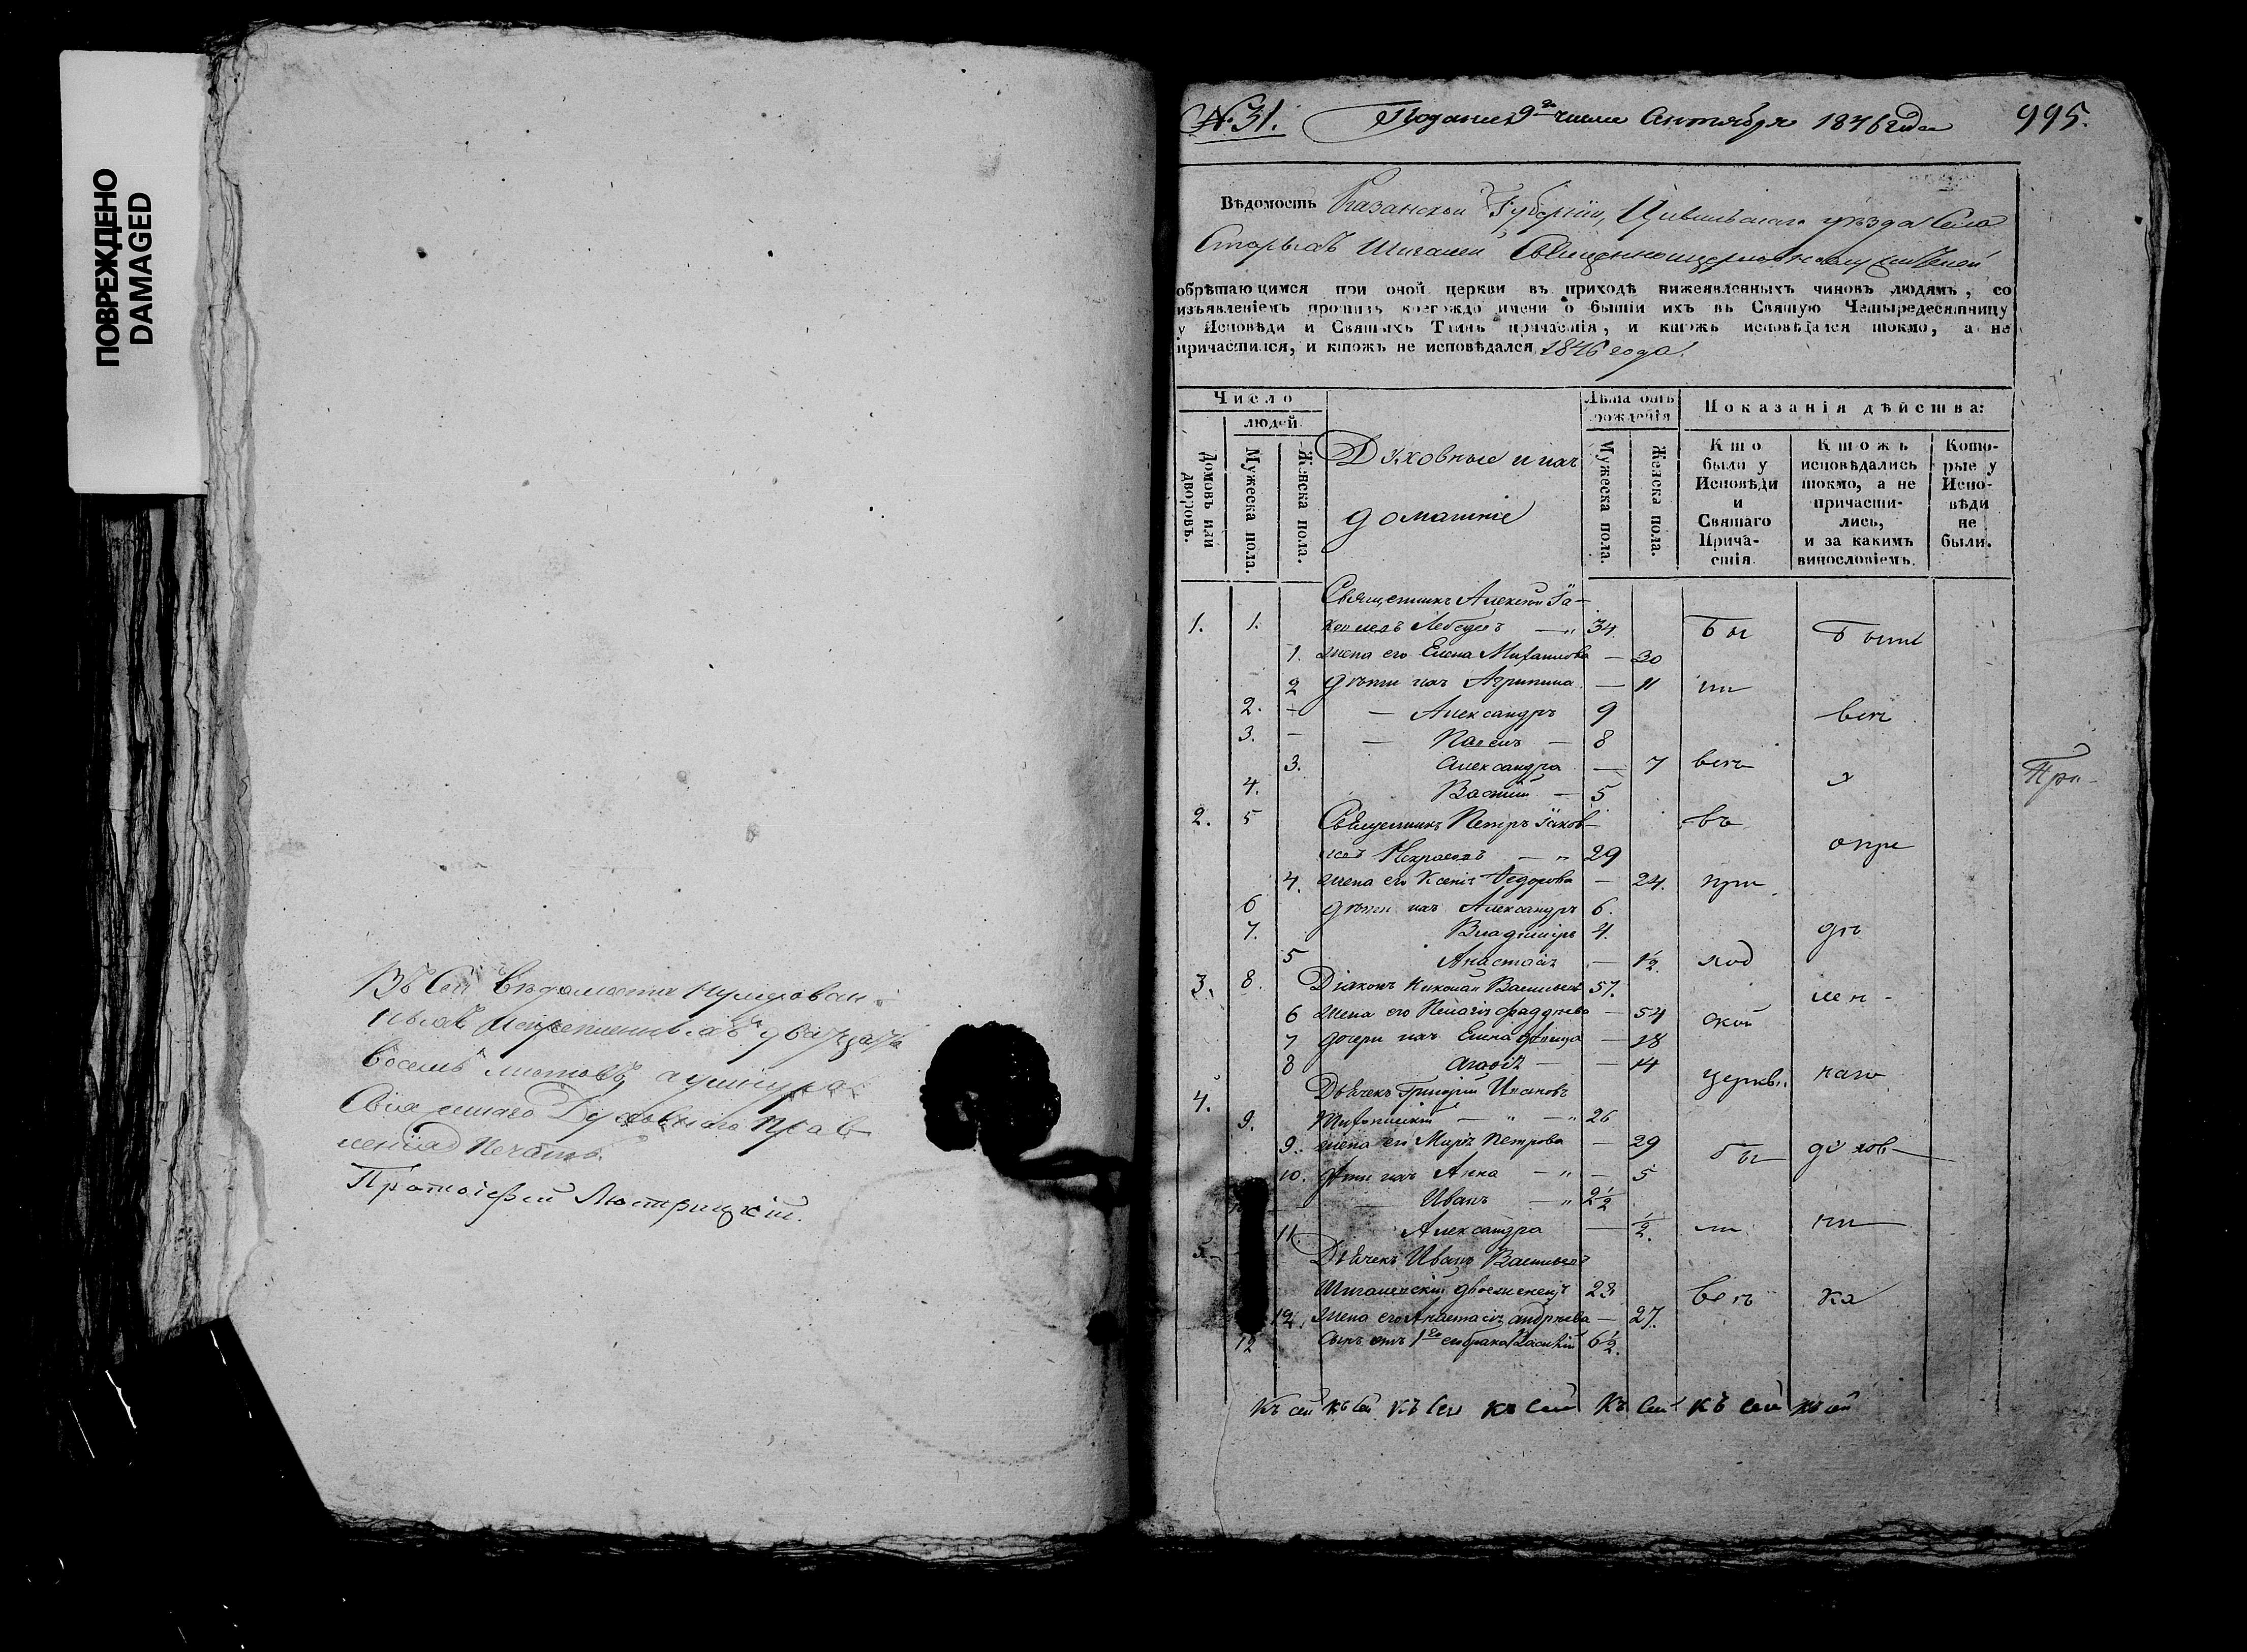 ПОВРЕЖДЕНО
DAMAGED
Въ сей ведомости нумерован-
ныхъ и скрепленныхъ двадцать
восемь листовъ
Духовнаго Прав-
ления печать.
Протоіерей Люстрицкій.
№ 31. Подана 9го числа Октября 1846 года 995.
Вѣдомость Казанской Губерніи, Цивильскаго уѣзда Села
Старыхъ Шигалей Священноцерковнослужителей
обрѣтающимся при оной церкви въ приходѣ нижеявленныхъ чиновъ людямъ, со
изъявленіемъ противъ коегождо имени о бытіи ихъ въ Святую Четыредесятницу
у Исповѣди и Святыхъ Таинъ причастія, и ктожъ исповѣдался токмо, а не
причастился, и ктожъ не исповѣдался 1846 года.
Число
людей
Домовъ или дворовъ.
Мужеска пола.
Женска пола.
Духовные и ихъ
домашніе
Лѣта отъ рожденія
Мужеска пола.
Женска пола.
Показанія дѣйства:
Кто были у Исповѣди и Святаго Причастія.
Ктожъ исповѣдались токмо, а не причастились, и за какимъ винословіемъ.
Которые у Исповѣди не были.
Священникъ Алексѣй Іа-
1. 1. ковлевъ Лебедевъ — " 34. Бы Бытіе
1. жена его Елена Михаилова — 30
2 дѣти ихъ Агрипина — 11 ли
2. — — Александръ 9 всѣх
3. — — Павелъ — 8
3. Александра — 7 всѣ
При-
4. Василій — 5
2. 5 Священникъ Петръ Іаков-
левъ Некрасовъ — " 29 опре
4. жена его Ксенія Федорова — 24. при
6 дѣти ихъ Александръ 6.
7. Владиміръ 4. дѣ
5 Анастасія — 1½. ход
3. 8. Діаконъ Николай Васильевъ 57. лен-
6 жена его Пелагія Фаддѣева — 54 ской
7 дочери ихъ Елена девица — 18
8 Агафія — 14 церкви наго
4. Дьячекъ Григорій Ивановъ
9. — " — " 26
9. жена его Марія Петрова — 29 бы духов—
10. дѣти ихъ Анна — " — 5
Иванъ — " 2½
11. Александра — ½. ли ни—
5. Дьячекъ Иванъ Васильевъ
Шигалевскій двоеженецъ 23 всѣ ка
12. жена его Анастасія Андреева — 27.
12 Сынъ отъ 1го брака Василій 6½.
Къ сей къ сей къ сей къ сей къ сей къ сей къ сей